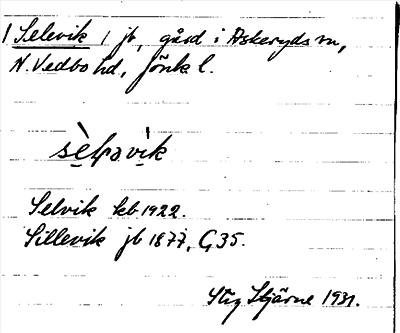 / Selevik / jb, gård i Askeryds sn,
N. Vedbo hd, Jönk. l.
sèləvìk
Selvik kb 1922.
Sillevik jb 1877, G 35.
Stig Stjärne 1931.